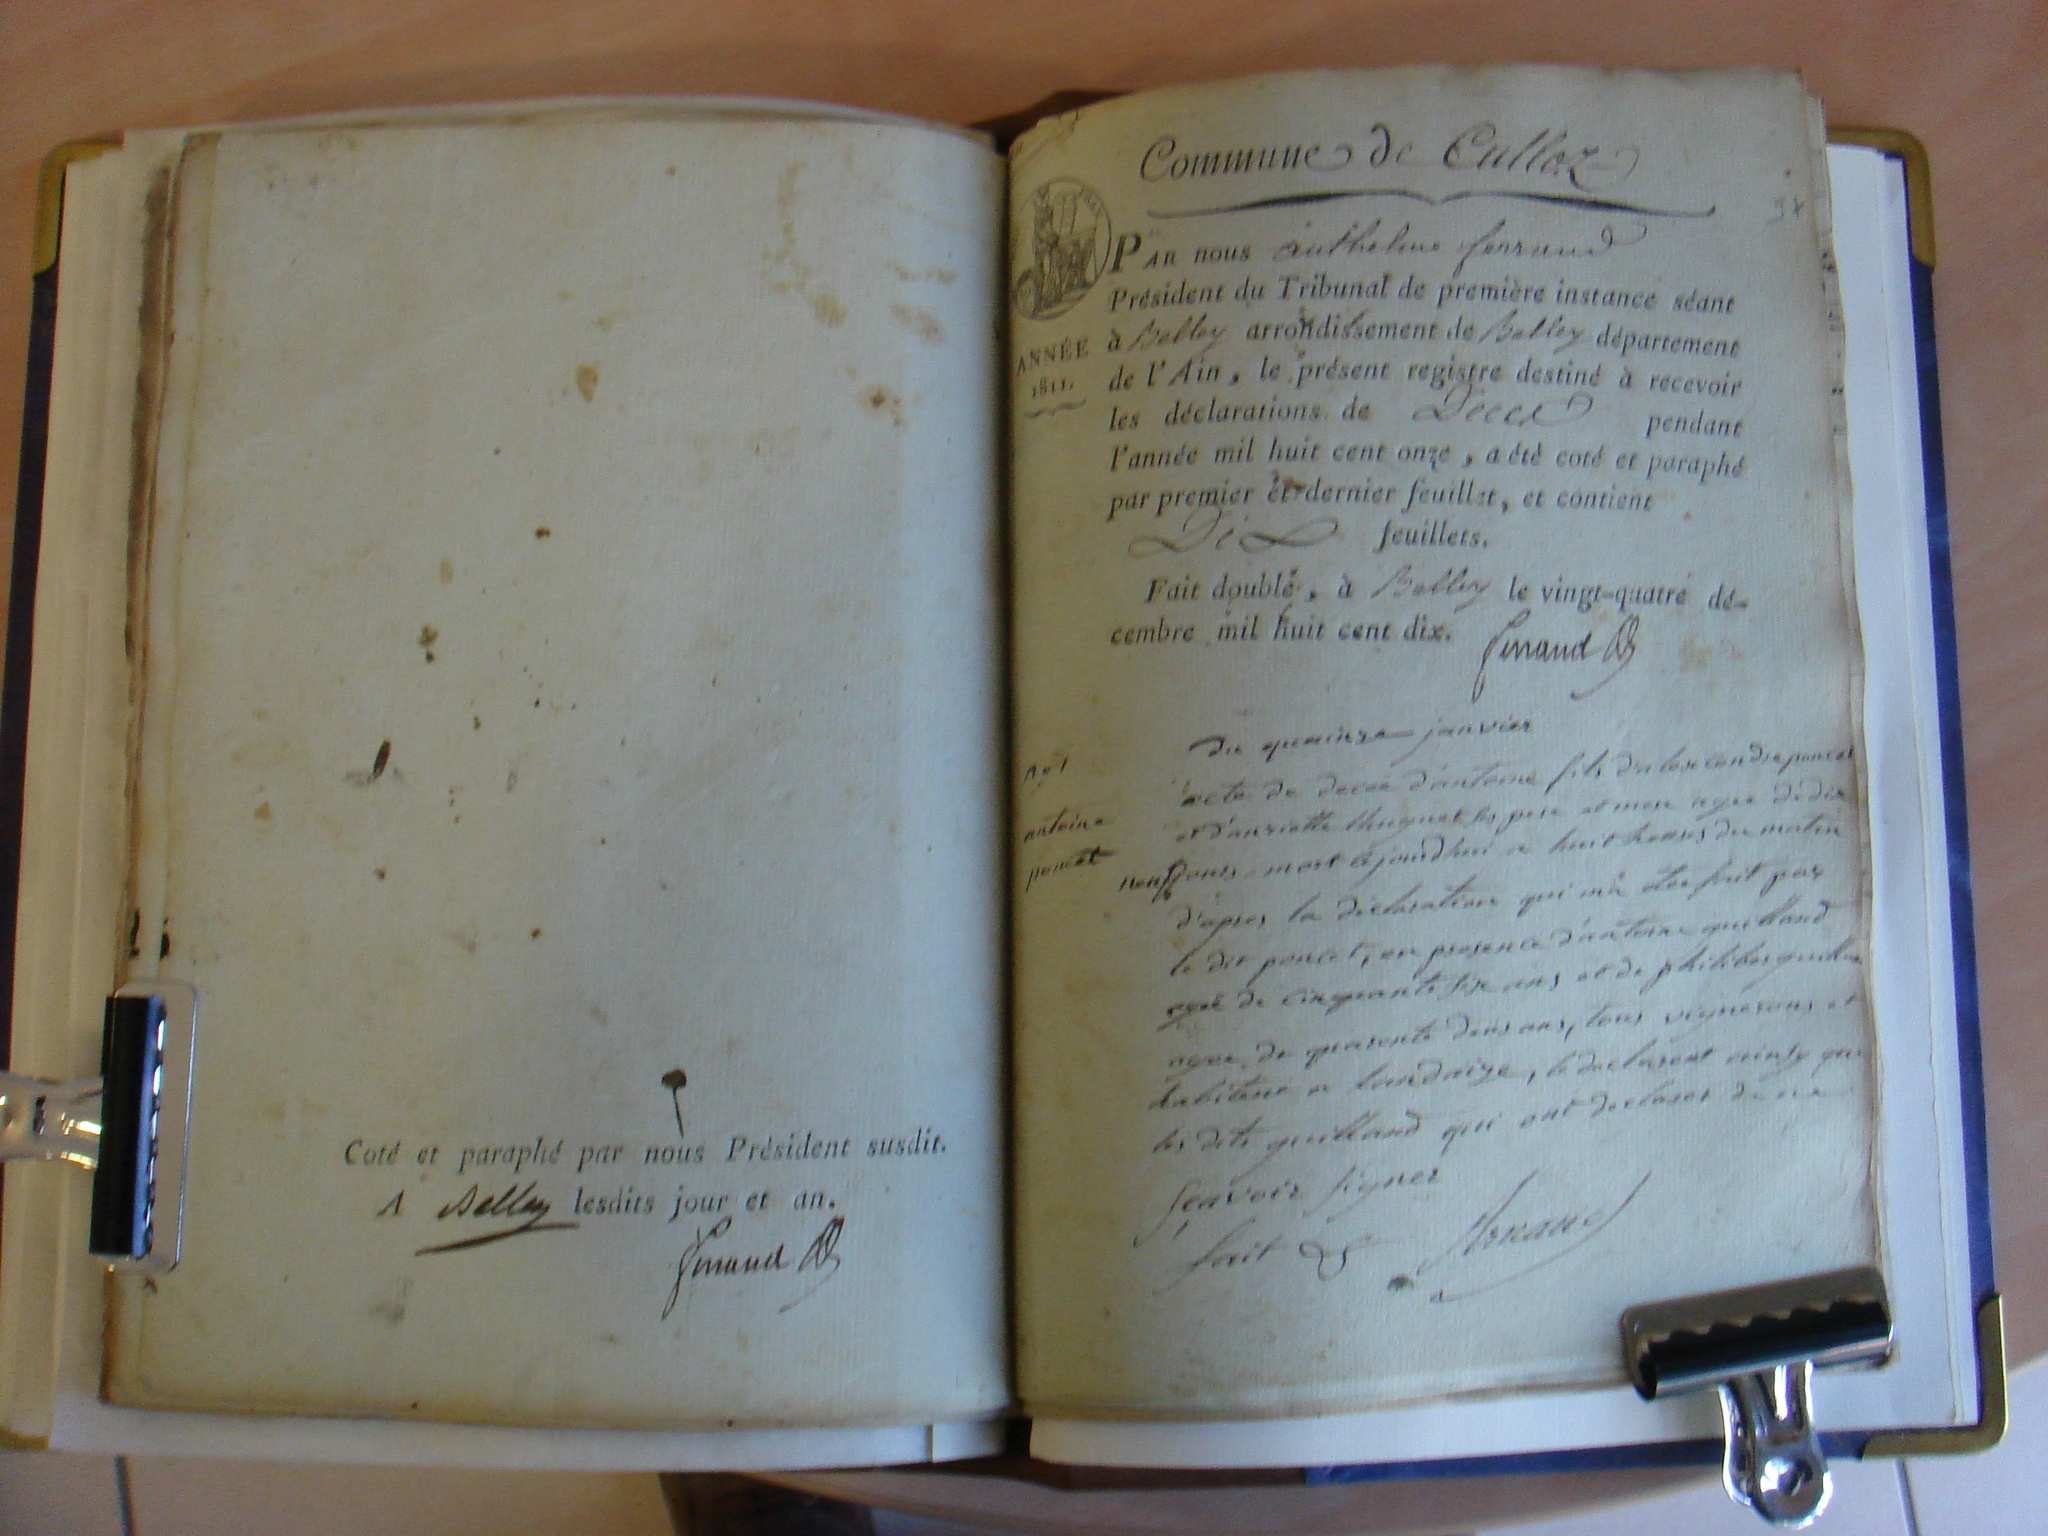 Coté et paraphé par nous Président susdit.
A Belley lesdits jour et an.
Ferrand
Commune de Culloz
37
PAR nous Anthelme ferrand
Président du Tribunal de première instance séant
à Belley arrondissement de Belley département
ANNÉE
1811.
de l'Ain, le présent registre destiné à recevoir
les déclarations de Décès pendant
l'année mil huit cent onze, a été coté et paraphé
par premier et dernier feuillet, et contient
Dix feuillets.
Fait double, à Belley le vingt-quatre dé-
cembre mil huit cent dix. Ferrand
Du quainze janvier
antoine
poncet
acte de deces d'antoine fils d'alexendre poncet
et d'anriette huguet ses pere et mere agee de dix
neuf ans mort cejourdhui a huit heures du matin
d'apres la déclaration qui m'a etee fait par
le dit poncet, en presence d'antoine guilland
agee de cinquante six ans et de philiber
agee de quarente deus ans, tous vignerons et
habitent a landaize, le declarent ainsy que
les dits guilland qui ont declarer de ne
scavoir signer
fait Arnaud